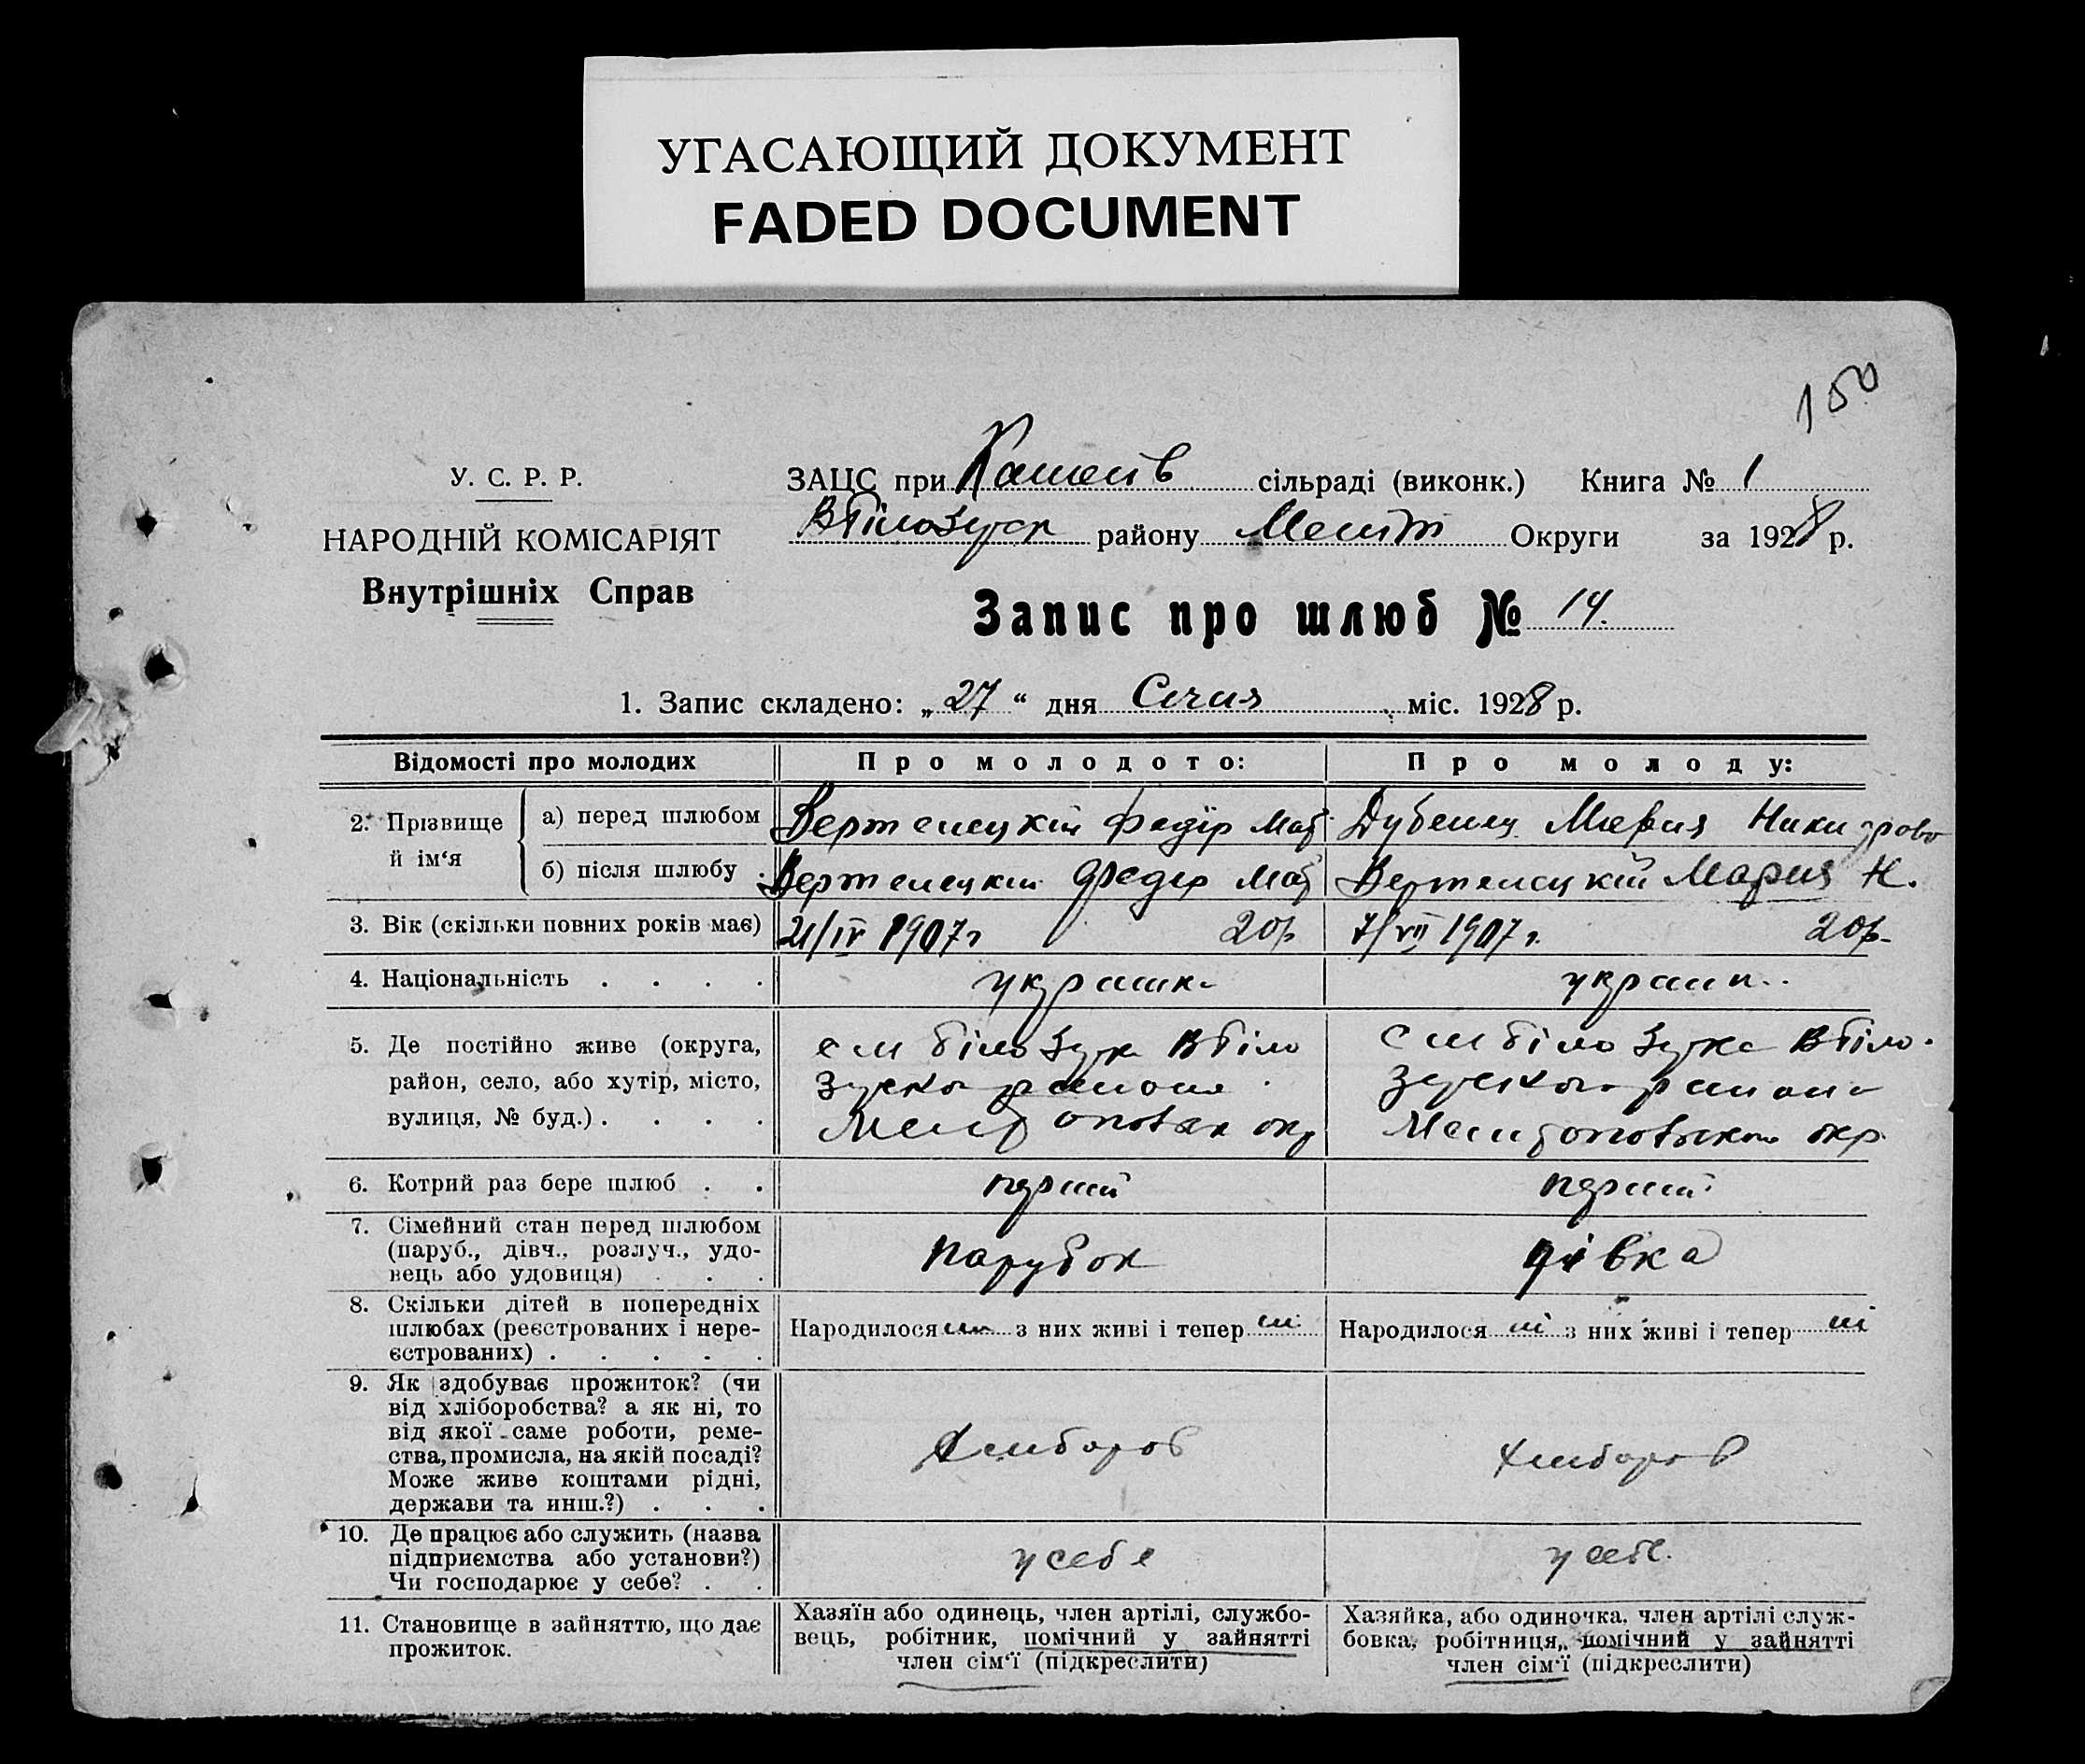 УГАСАЮЩИЙ ДОКУМЕНТ
FADED DOCUMENT
150
У. С. Р. Р.
НАРОДНІЙ КОМІСАРІЯТ
Внутрішніх Справ
ЗАЦС при сільраді (виконк.) Книга № 1
району Меліт Округи за 1928 р.
Запис про шлюб № 14.
1. Запис складено: „27“ дня Січня міс. 1928 р.
Відомості про молодих
Про молодого:
Про молоду:
2. Прізвище й ім‘я
а) перед шлюбом
Федір Мат
Дубенец Мария
б) після шлюбу
Федір Мат
Мария Н.
3. Вік (скільки повних років має)
21/IV 1907 г 20 р
7/VII 1907 г. 20 р.
4. Національність . . . .
україн.
україн..
5. Де постійно живе (округа, район, село, або хутір, місто, вулиця, № буд.) . . . .
Білозурк ВБіло
окр
Білозурка ВБіло.
окр.
6. Котрий раз бере шлюб . .
перший
перший
7. Сімейний стан перед шлюбом (паруб., дівч., розлуч., удовець або удовиця) . . .
парубок
дівка
8. Скільки дітей в попередніх шлюбах (реєстрованих і нереєстрованих) . . . . .
Народилося ні з них живі і тепер ні
Народилося ні з них живі і тепер ні
9. Як здобуває прожиток? (чи від хліборобства? а як ні, то від якої саме роботи, ремества, промисла, на якій посаді? Може живе коштами рідні, держави та инш.?) . . .
хлібороб
хлібороб
10. Де працює або служить (назва підприємства або установи?) Чи господарює у себе? . .
у себе
у себе.
11. Становище в зайняттю, що дає прожиток.
Хазяїн або одинець, член артілі, службовець, робітник, помічний у зайнятті член сім‘ї (підкреслити)
Хазяйка, або одиночка, член артілі службовка, робітниця, помічний у зайнятті член сім‘ї (підкреслити)